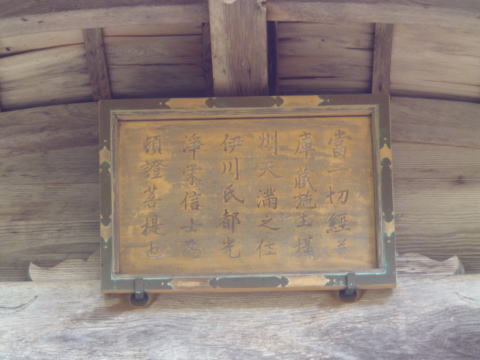 當一切經并
庫藏施主攝
州天滿之住
伊川氏都光
淨宗信士為
頓證菩提也